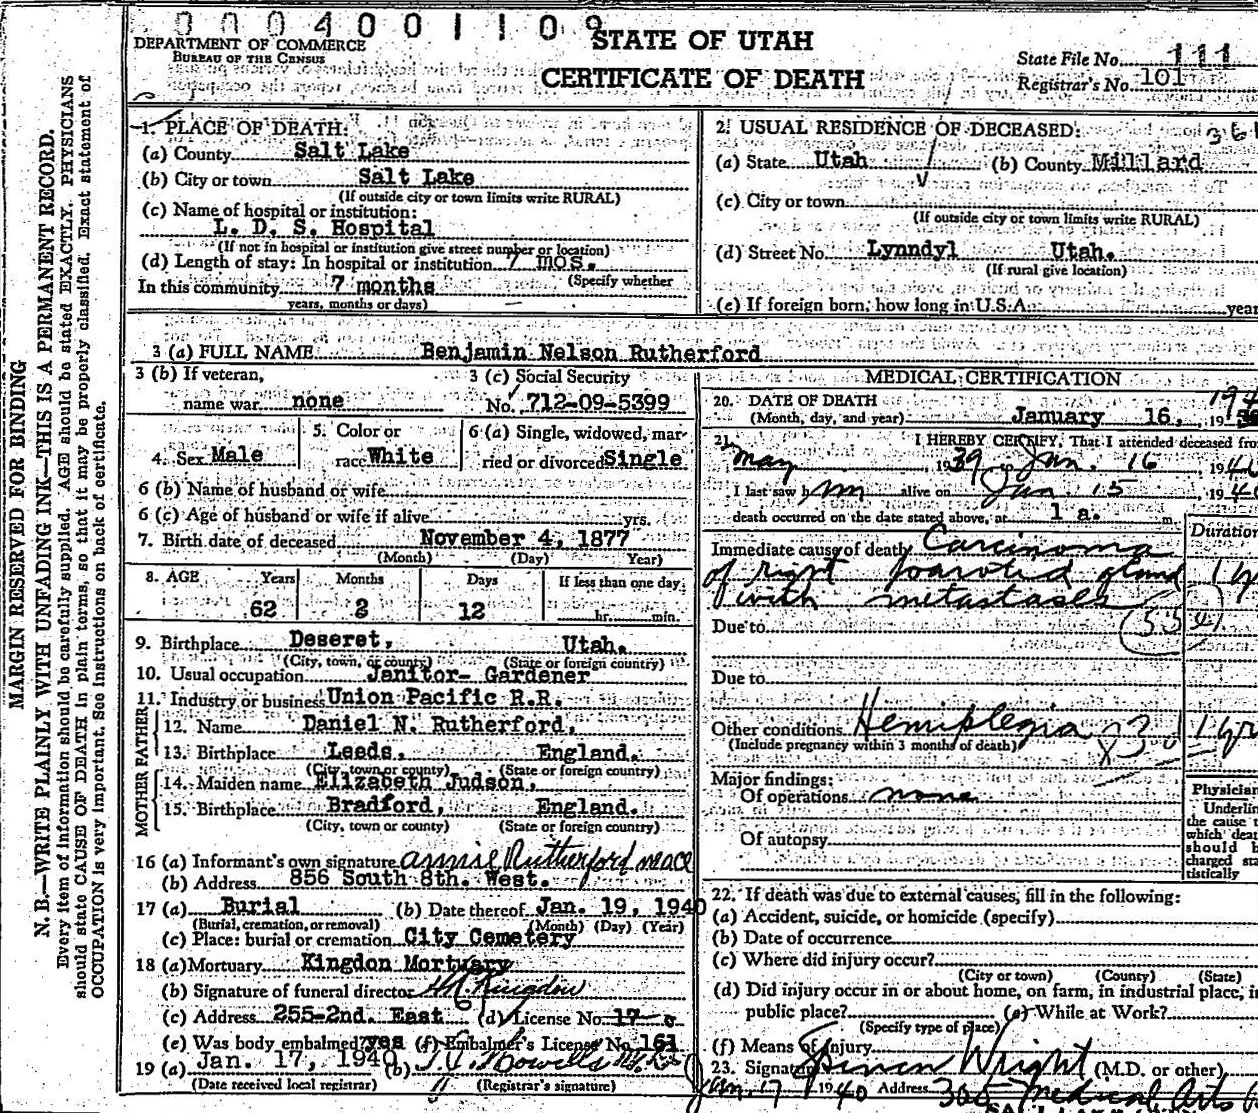 0004001109
DEPARTMENT OF COMMERCE
BUREAU OF THE CENSUS
STATE OF UTAH
CERTIFICATE OF DEATH
State File No. 111
Registrar's No. 101
MARGIN RESERVED FOR BINDING
N. B.—WRITE PLAINLY WITH UNFADING INK—THIS IS A PERMANENT RECORD.
Every item of information should be carefully supplied. AGE should be stated EXACTLY. PHYSICIANS
should state CAUSE OF DEATH in plain terms, so that it may be properly classified. Exact statement of
OCCUPATION is very important. See instructions on back of certificate.
1. PLACE OF DEATH:
(a) County Salt Lake
(b) City or town Salt Lake
(If outside city or town limits write RURAL)
(c) Name of hospital or institution:
L. D. S. Hospital
(If not in hospital or institution give street number or location)
(d) Length of stay: In hospital or institution 7 mos.
(Specify whether
In this community 7 months
years, months or days)
2. USUAL RESIDENCE OF DECEASED:
(a) State Utah (b) County Millard
(c) City or town
(If outside city or town limits write RURAL)
(d) Street No. Lynndyl Utah.
(If rural give location)
(e) If foreign born, how long in U.S.A. year
3 (a) FULL NAME Benjamin Nelson Rutherford
3 (b) If veteran,
name war none
3 (c) Social Security
No. 712-09-5399
4. Sex Male
5. Color or
race White
6 (a) Single, widowed, mar-
ried or divorced Single
6 (b) Name of husband or wife
6 (c) Age of husband or wife if alive yrs.
7. Birth date of deceased November 4, 1877
(Month) (Day) Year)
8. AGE Years Months Days If less than one day
62 2 12 hr. min.
9. Birthplace Deseret, Utah.
(City, town, or county) (State or foreign country)
10. Usual occupation Janitor- Gardener
11. Industry or business Union Pacific R.R.
FATHER
12. Name Daniel N. Rutherford,
13. Birthplace Leeds, England.
(City, town or county) (State or foreign country)
MOTHER
14. Maiden name Elizabeth Judson,
15. Birthplace Bradford, England.
(City, town or county) (State or foreign country)
16 (a) Informant's own signature Annie Rutherford Mace
(b) Address 856 South 8th. West.
17 (a) Burial (b) Date thereof Jan. 19, 1940
(Burial, cremation, or removal) (Month) (Day) (Year)
(c) Place: burial or cremation City Cemetery
18 (a) Mortuary Kingdon Mortuary
(b) Signature of funeral director Kingdon
(c) Address 255-2nd. East (d) License No. 17
(e) Was body embalmed? yes (f) Embalmer's License No. 161
19 (a) Jan. 17, 1940 (b)
(Date received local registrar) (Registrar's signature)
MEDICAL CERTIFICATION
20. DATE OF DEATH
(Month, day, and year) January 16, 19
21. I HEREBY CERTIFY, That I attended deceased fro
May 1939 to Jan. 16 1940
I last saw him alive on Jan. 15 1940
death occurred on the date stated above, at 1 a. m.
Duration
Immediate cause of death Carcinoma
of right parotid gland 1 y
with metastases
Due to
Due to
Other conditions Hemiplegia 1 yr
(Include pregnancy within 3 months of death)
Major findings:
Of operations none
Of autopsy
Physician
Underlin
the cause t
which deat
should b
charged sta
tistically
22. If death was due to external causes, fill in the following:
(a) Accident, suicide, or homicide (specify)
(b) Date of occurrence
(c) Where did injury occur?
(City or town) (County) (State)
(d) Did injury occur in or about home, on farm, in industrial place, in
public place? (e) While at Work?
(Specify type of place)
(f) Means of injury
23. Signature Wright (M.D. or other)
Jan. 17 1940 Address 305 Medical Arts